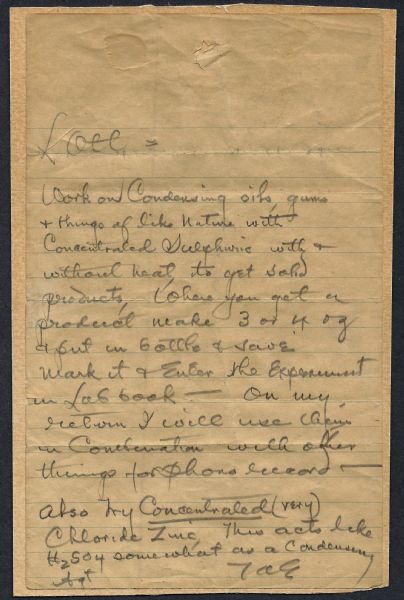 Work on Condensing oils, gums
& things of like nature with
Concentrated Sulphuric with &
without heat to get solid
products, When you get a
product make 3 or 4 oz
& put in bottle & save
Mark it & Enter the Experiment
in Lab book — On my
return I will use them
in Combination with other
things for phono record —
Also try Concentrated (very)
Chloride Zinc, This acts like
H2SO4 somewhat as a Condensing
Agt
TAE